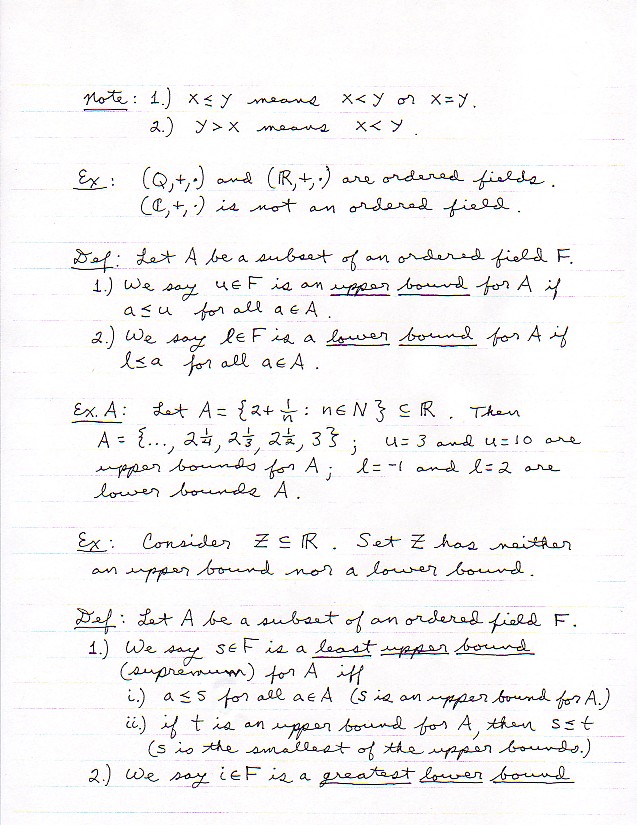 Note: 1.) x ≤ y means x < y or x = y.
2.) y > x means x < y.
Ex: (Q,+,·) and (ℝ,+,·) are ordered fields.
(ℂ,+,·) is not an ordered field.
Def: Let A be a subset of an ordered field F.
1.) We say u ∈ F is an upper bound for A if
a ≤ u for all a ∈ A.
2.) We say l ∈ F is a lower bound for A if
l ≤ a for all a ∈ A.
Ex. A: Let A = {2 + 1/n : n ∈ N} ⊆ ℝ. Then
A = {..., 2 1/4, 2 1/3, 2 1/2, 3}; u = 3 and u = 10 are
upper bounds for A; l = -1 and l = 2 are
lower bounds A.
Ex: Consider Z ⊆ ℝ. Set Z has neither
an upper bound nor a lower bound.
Def: Let A be a subset of an ordered field F.
1.) We say s ∈ F is a least upper bound
(supremum) for A iff
i.) a ≤ s for all a ∈ A (s is an upper bound for A.)
ii.) if t is an upper bound for A, then s ≤ t
(s is the smallest of the upper bounds.)
2.) We say i ∈ F is a greatest lower bound